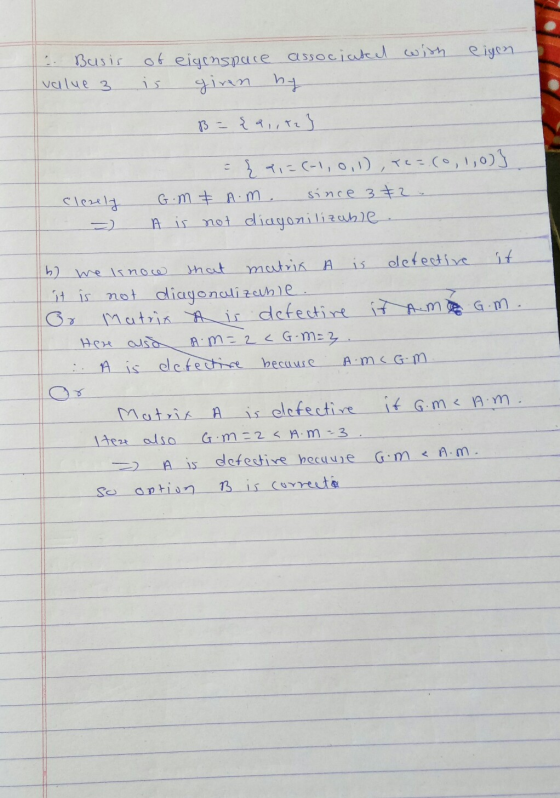 ∴ Basis of eigenspace associated with eigen
value 3 is given by
B = { x₁, x₂ }
= { x₁ = (-1, 0, 1), x₂ = (0, 1, 0) }
Clearly G.M ≠ A.M. since 3 ≠ 2.
⇒ A is not diagonilizable.
b) we know that matrix A is defective if
it is not diagonalizable.
Or Matrix A is defective if A.M G.M.
Here also A.M = 2 < G.M = 3.
∴ A is defective because A.M < G.M
Or
Matrix A is defective if G.M < A.M.
Here also G.M = 2 < A.M = 3.
⇒ A is defective because G.M < A.M.
so option B is correct